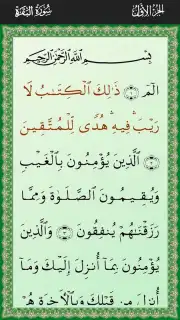 الجزء الأول سورة البقرة
بِسْمِ اللَّهِ الرَّحْمَٰنِ الرَّحِيمِ
الٓمٓ ۝١ ذَٰلِكَ ٱلْكِتَـٰبُ لَا
رَيْبَ ۛ فِيهِ ۛ هُدًى لِّلْمُتَّقِينَ
۝٢ ٱلَّذِينَ يُؤْمِنُونَ بِٱلْغَيْبِ
وَيُقِيمُونَ ٱلصَّلَوٰةَ وَمِمَّا
رَزَقْنَـٰهُمْ يُنفِقُونَ ۝٣ وَٱلَّذِينَ
يُؤْمِنُونَ بِمَآ أُنزِلَ إِلَيْكَ وَمَآ
أُنزِلَ مِن قَبْلِكَ وَبِٱلْـَٔاخِرَةِ هُمْ